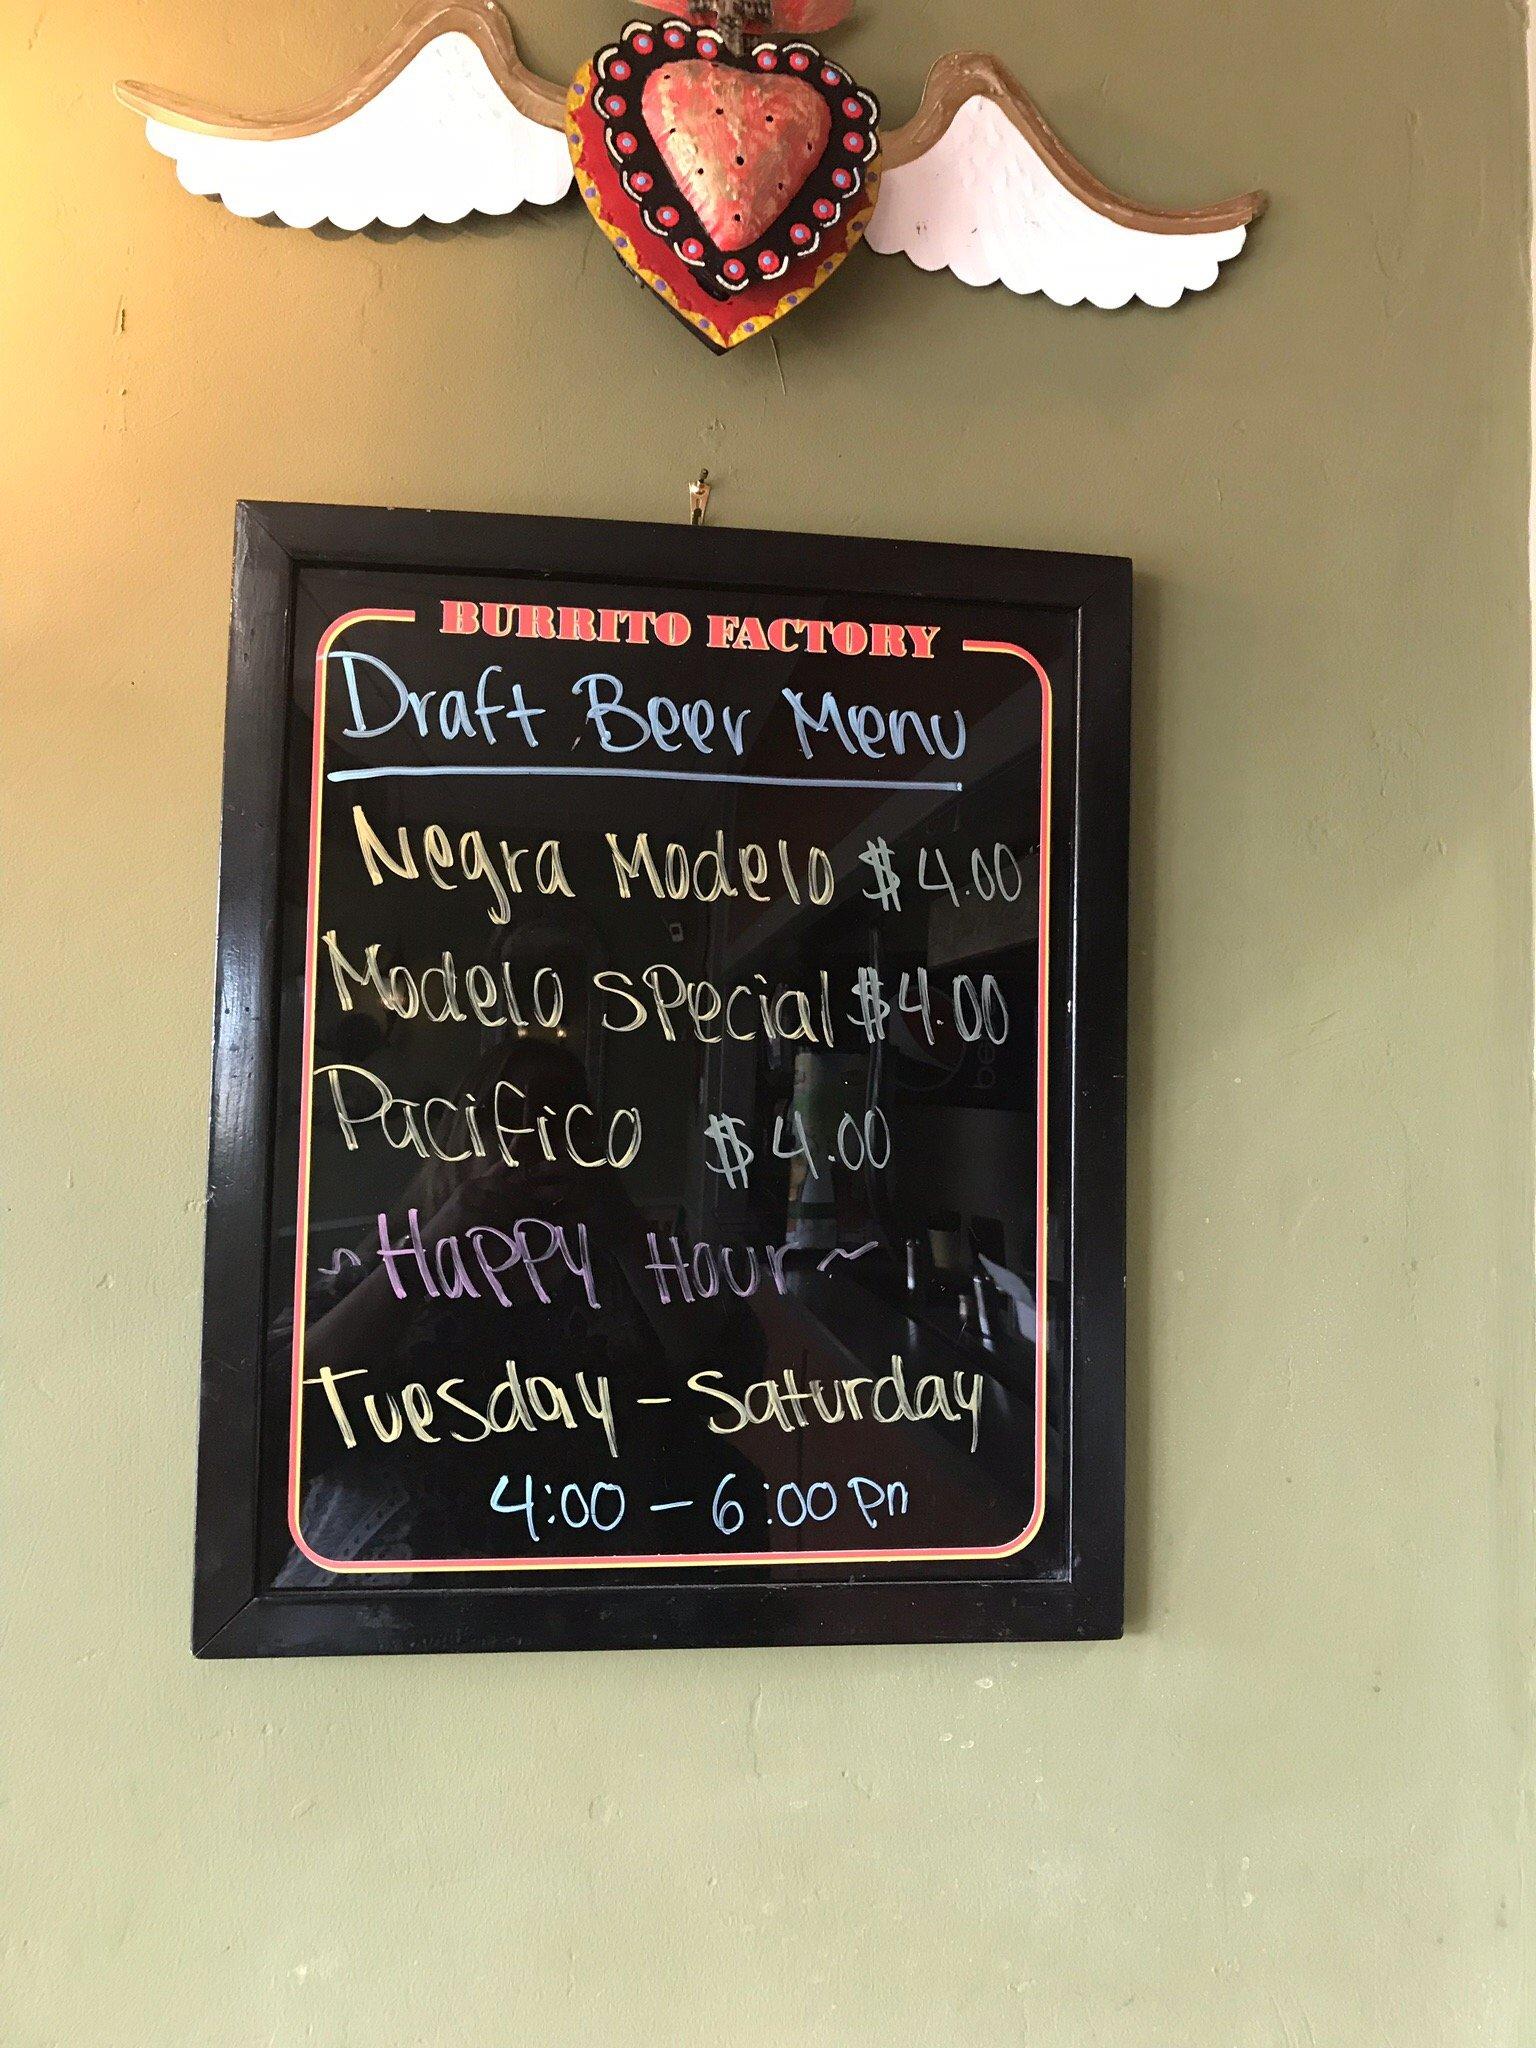 BURRITO FACTORY
Draft Beer Menu
Negra Modelo $4.00
Modelo Special $4.00
Pacifico $4.00
~Happy Hour~
Tuesday - Saturday
4:00 - 6:00 pm